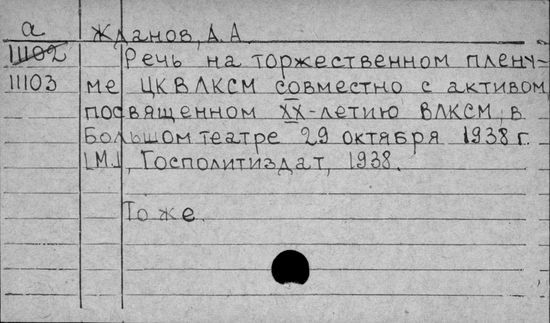 а Жданов, А. А.
11102 Речь на торжественном плену-
11103 ме ЦК ВЛКСМ совместно с активом,
посвященном XX-летию ВЛКСМ, в
Большом театре 29 октября 1938 г.
[М.], Госполитиздат, 1938.
То же.